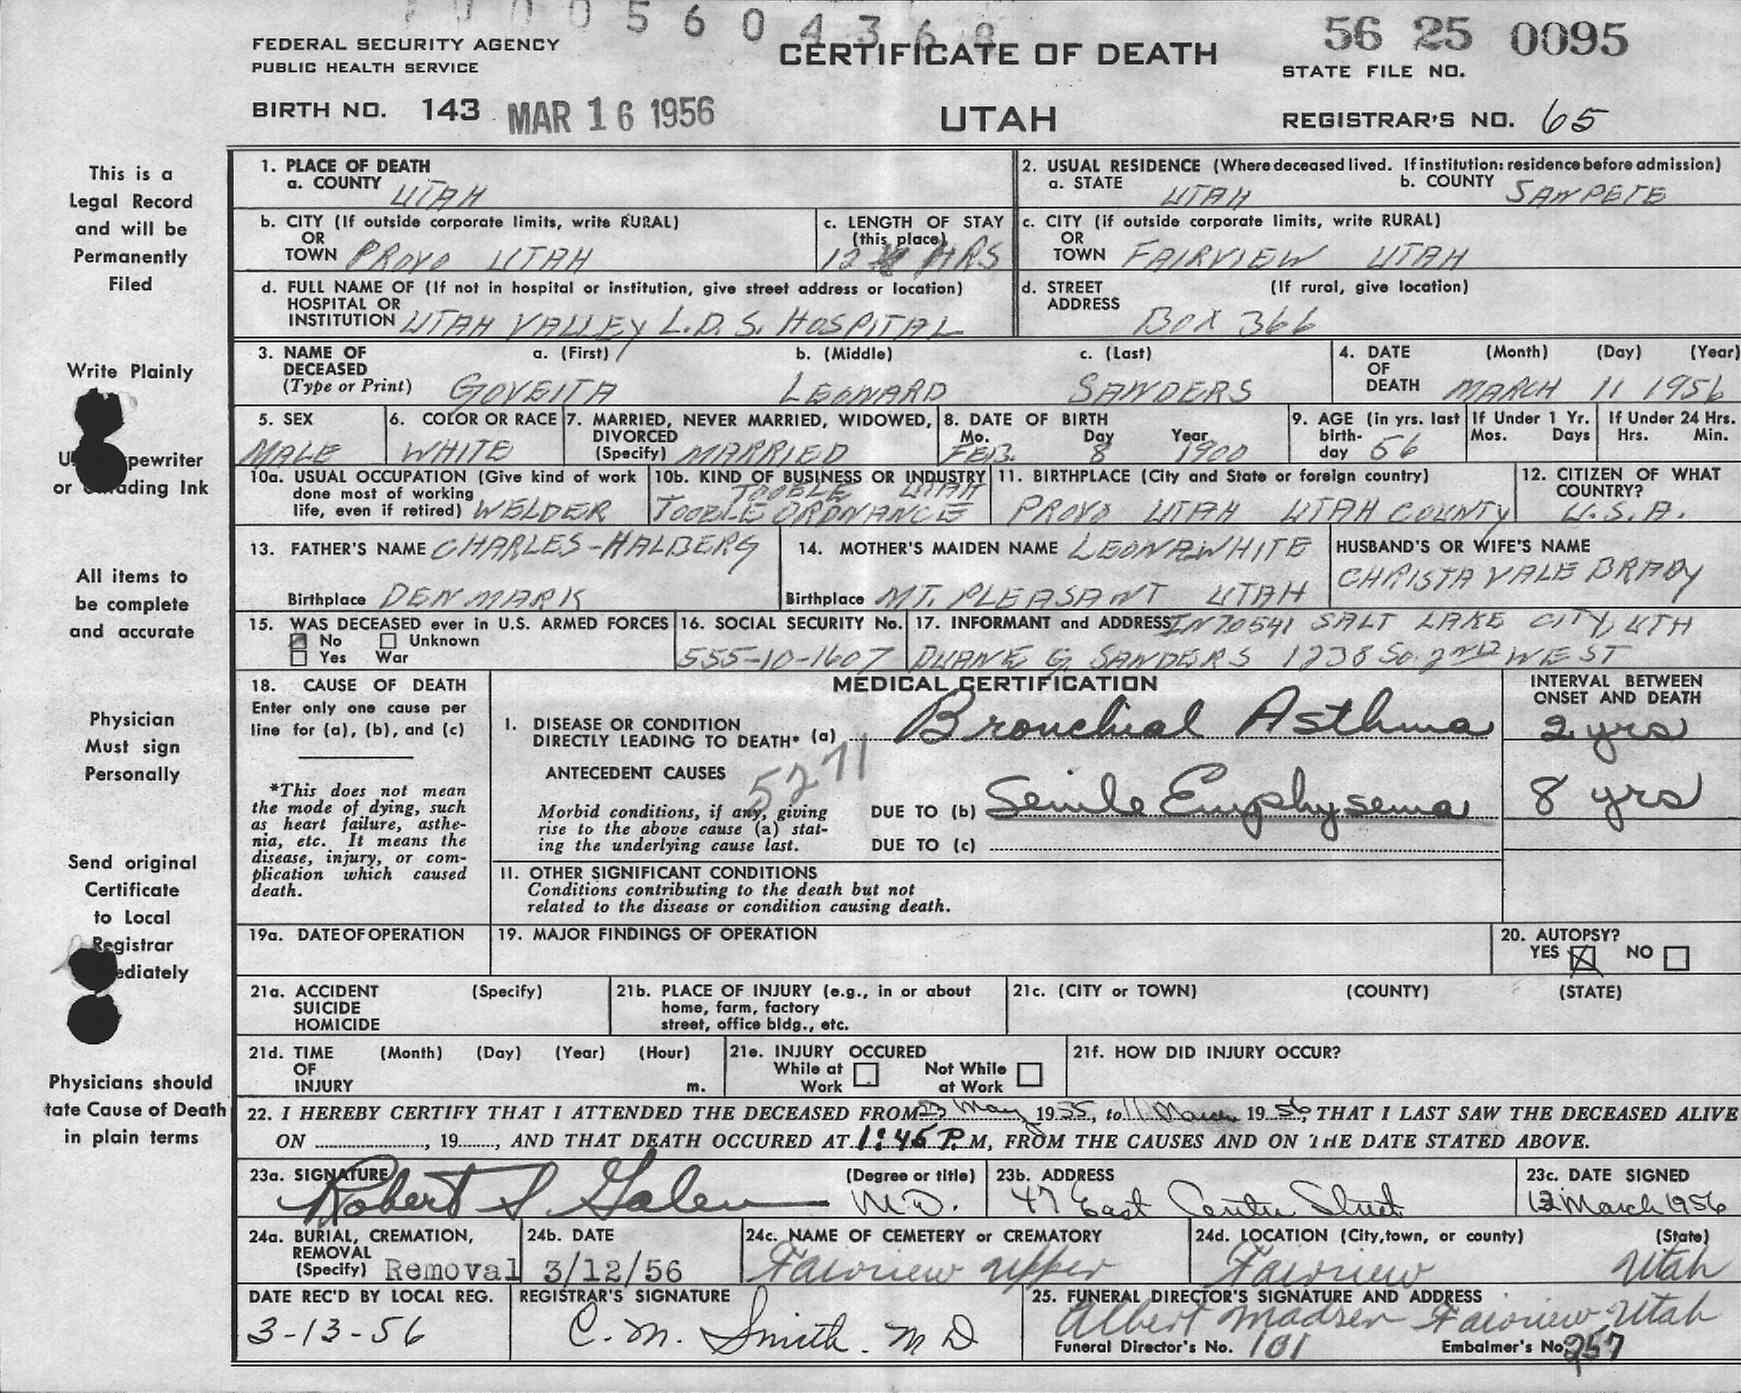 560436
FEDERAL SECURITY AGENCY
PUBLIC HEALTH SERVICE
CERTIFICATE OF DEATH
56 25 0095
STATE FILE NO.
BIRTH NO. 143 MAR 16 1956
UTAH
REGISTRAR'S NO. 65
This is a
Legal Record
and will be
Permanently
Filed
Write Plainly
pewriter
or ading Ink
All items to
be complete
and accurate
Physician
Must sign
Personally
Send original
Certificate
to Local
Registrar
ediately
Physicians should
tate Cause of Death
in plain terms
1. PLACE OF DEATH
a. COUNTY UTAH
2. USUAL RESIDENCE (Where deceased lived. If institution: residence before admission)
a. STATE UTAH b. COUNTY SANPETE
b. CITY (If outside corporate limits, write RURAL)
OR
TOWN PROVO UTAH
c. LENGTH OF STAY
(this place)
12 HRS
c. CITY (if outside corporate limits, write RURAL)
OR
TOWN FAIRVIEW UTAH
d. FULL NAME OF (If not in hospital or institution, give street address or location)
HOSPITAL OR
INSTITUTION UTAH VALLEY L.D.S. HOSPITAL
d. STREET (If rural, give location)
ADDRESS BOX 366
3. NAME OF DECEASED (Type or Print)
a. (First) b. (Middle) c. (Last)
GOVEITA LEONARD SANDERS
4. DATE OF DEATH (Month) (Day) (Year)
MARCH 11 1956
5. SEX
MALE
6. COLOR OR RACE
WHITE
7. MARRIED, NEVER MARRIED, WIDOWED,
DIVORCED
(Specify) MARRIED
8. DATE OF BIRTH
Mo. Day Year
FEB. 8 1900
9. AGE (in yrs. last
birth-
day 56
If Under 1 Yr.
Mos. Days
If Under 24 Hrs.
Hrs. Min.
10a. USUAL OCCUPATION (Give kind of work
done most of working
life, even if retired) WELDER
10b. KIND OF BUSINESS OR INDUSTRY
TOOELE UTAH
TOOELE ORDNANCE
11. BIRTHPLACE (City and State or foreign country)
PROVO UTAH UTAH COUNTY
12. CITIZEN OF WHAT
COUNTRY?
U.S.A.
13. FATHER'S NAME CHARLES-HALBERG
Birthplace DENMARK
14. MOTHER'S MAIDEN NAME LEONA WHITE
Birthplace MT. PLEASANT UTAH
HUSBAND'S OR WIFE'S NAME
CHRISTA VALE BRADY
15. WAS DECEASED ever in U.S. ARMED FORCES
No Unknown
Yes War
16. SOCIAL SECURITY No.
555-10-1607
17. INFORMANT and ADDRESS SALT LAKE CITY, UTH
DUANE G. SANDERS 1238 SO. 2ND WEST
18. CAUSE OF DEATH
Enter only one cause per
line for (a), (b), and (c)
*This does not mean
the mode of dying, such
as heart failure, asthe-
nia, etc. It means the
disease, injury, or com-
plication which caused
death.
MEDICAL CERTIFICATION
INTERVAL BETWEEN
ONSET AND DEATH
I. DISEASE OR CONDITION
DIRECTLY LEADING TO DEATH* (a) Bronchial Asthma 2 yrs
ANTECEDENT CAUSES
5271
Morbid conditions, if any, giving
rise to the above cause (a) stat-
ing the underlying cause last.
DUE TO (b) Senile Emphysema 8 yrs
DUE TO (c)
II. OTHER SIGNIFICANT CONDITIONS
Conditions contributing to the death but not
related to the disease or condition causing death.
19a. DATE OF OPERATION
19. MAJOR FINDINGS OF OPERATION
20. AUTOPSY?
YES NO
21a. ACCIDENT (Specify)
SUICIDE
HOMICIDE
21b. PLACE OF INJURY (e.g., in or about
home, farm, factory
street, office bldg., etc.
21c. (CITY or TOWN) (COUNTY) (STATE)
21d. TIME (Month) (Day) (Year) (Hour)
OF
INJURY m.
21e. INJURY OCCURED
While at Work Not While at Work
21f. HOW DID INJURY OCCUR?
22. I HEREBY CERTIFY THAT I ATTENDED THE DECEASED FROM 23 May 1955, to 11 March 1956, THAT I LAST SAW THE DECEASED ALIVE
ON , 19 , AND THAT DEATH OCCURED AT 1:45 P. M, FROM THE CAUSES AND ON THE DATE STATED ABOVE.
23a. SIGNATURE (Degree or title)
Robert S Galen M.D.
23b. ADDRESS
47 East Center Street
23c. DATE SIGNED
12 March 1956
24a. BURIAL, CREMATION,
REMOVAL
(Specify) Removal
24b. DATE
3/12/56
24c. NAME OF CEMETERY or CREMATORY
Fairview Upper
24d. LOCATION (City, town, or county) (State)
Fairview Utah
DATE REC'D BY LOCAL REG.
3-13-56
REGISTRAR'S SIGNATURE
C. M. Smith. M D
25. FUNERAL DIRECTOR'S SIGNATURE AND ADDRESS
Albert Madsen Fairview, Utah
Funeral Director's No. 101 Embalmer's No. 257